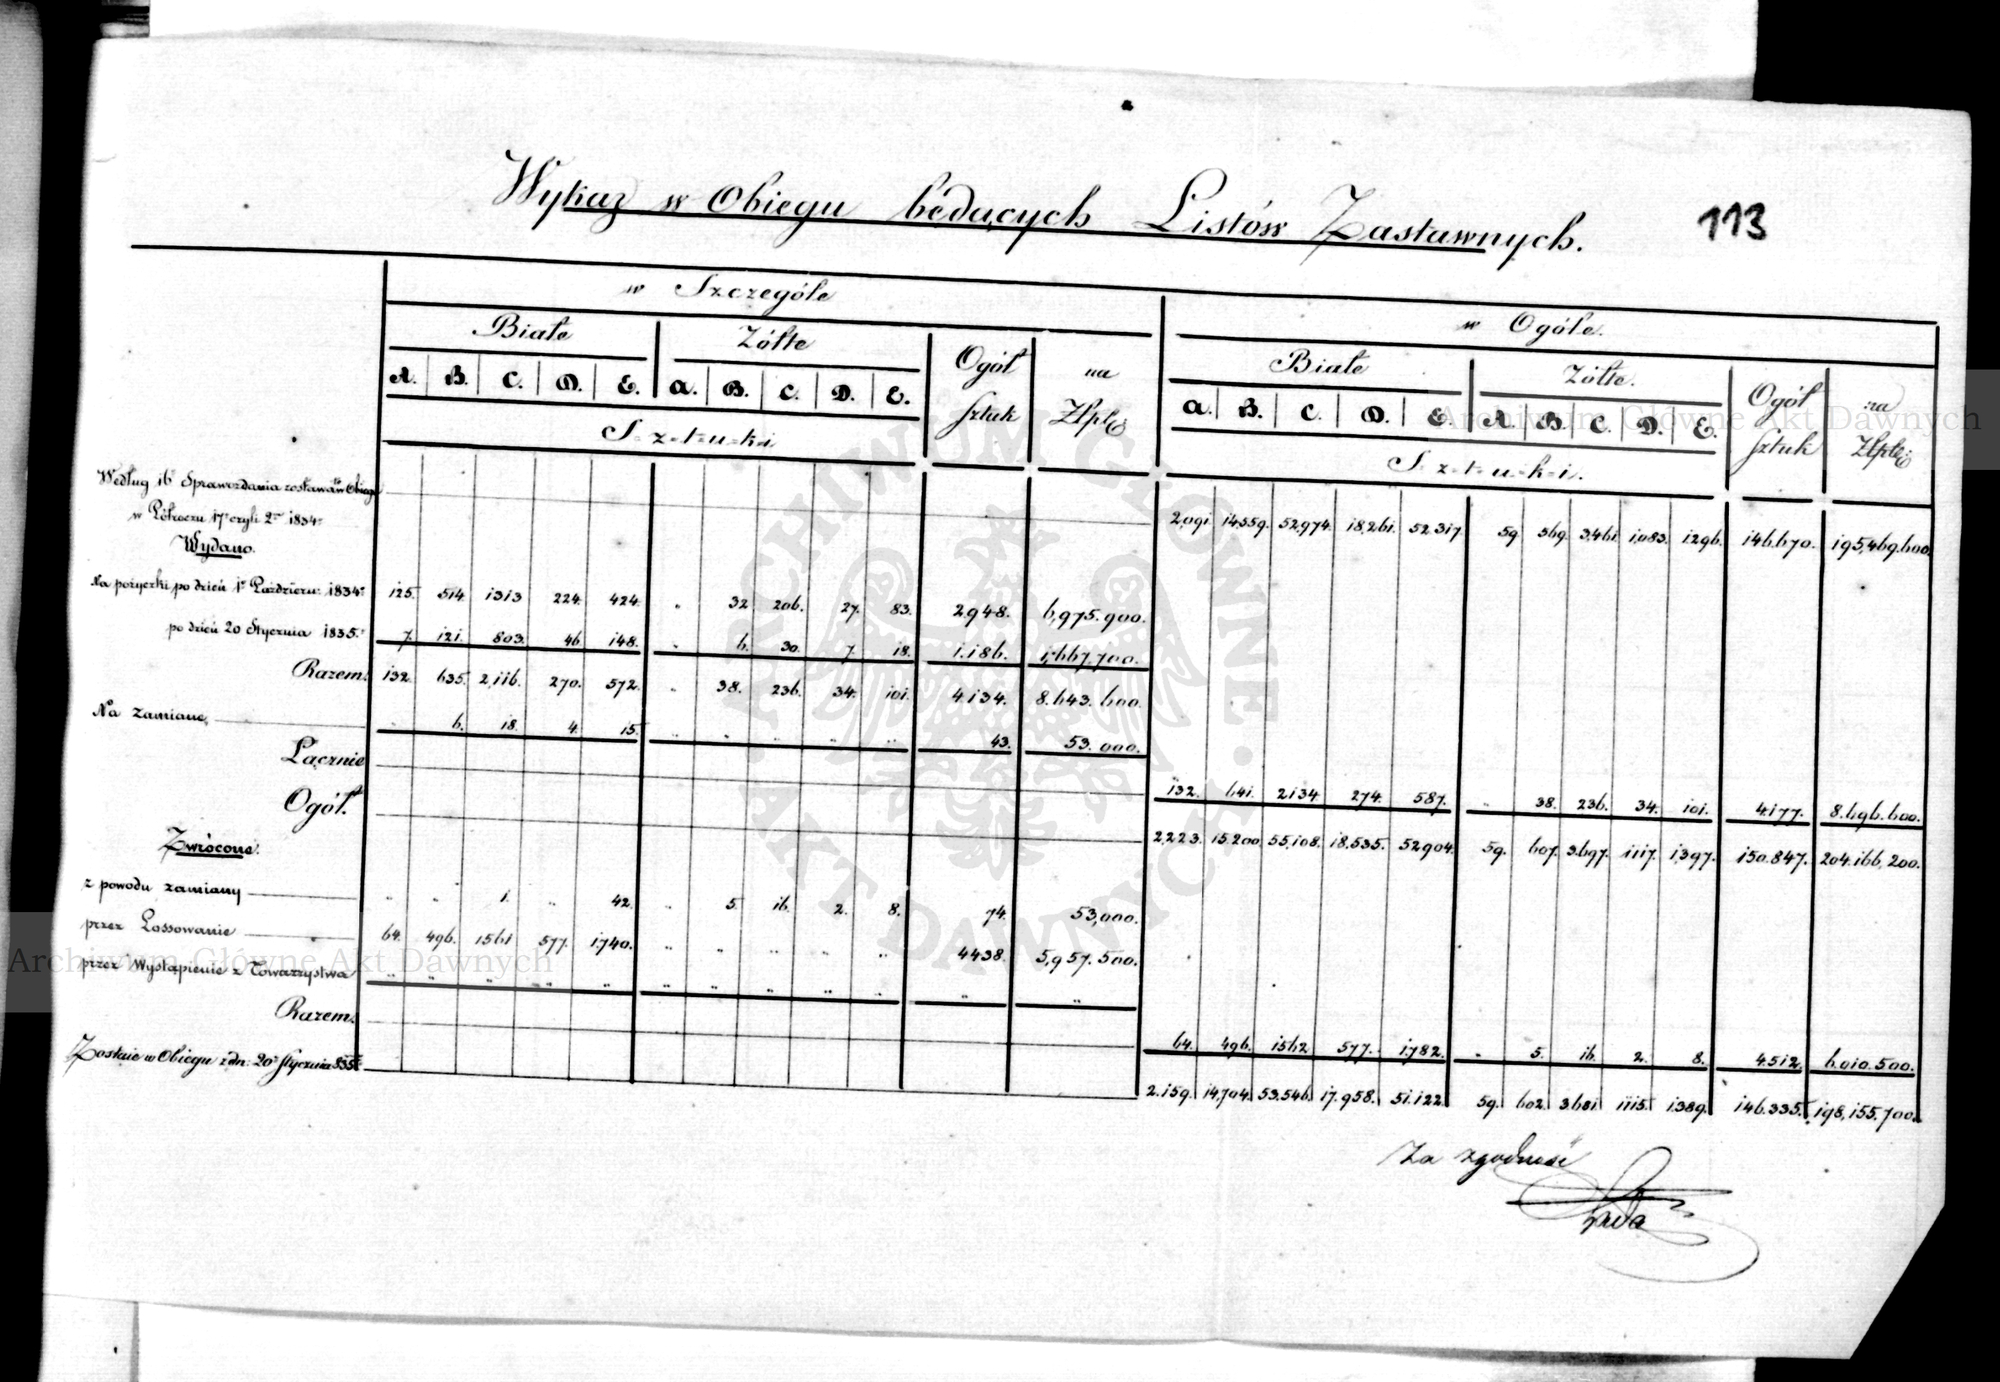 Wykaz w Obiegu będących Listów Zastawnych.
113
w Szczególe
w Ogóle.
Białe Żółte Ogół sztuk na Złpol:
Białe Żółte. Ogół sztuk na Złpol:
A. B. C. D. E. A. B. C. D. E.
A. B. C. D. E. A. B. C. D. E.
S-z-t-u-k-i
S-z-t-u-k-i.
Według 16º Sprawozdania zostawało w Obiegu
w Półroczu 17º czyli 2m 1834º 2,091. 14,559. 52,974. 18,261. 52.317. 59. 569. 3,461. 1,083. 1296. 146.670. 195,469.600.
Wydano.
Na pożyczki po dzień 1º Paździer: 1834º 125. 514. 1313 224. 424. " 32. 206. 27. 83. 2948. 6,975.900.
po dzień 20 Stycznia 1835º 7. 121. 803. 46. 148. " 6. 30. 7. 18. 1.186. 1,667.700.
Razem. 132. 635. 2,116. 270. 572. " 38. 236. 34. 101. 4.134. 8.643.600.
Na zamianę " 6. 18. 4. 15. " " " " " 43. 53.000.
Łącznie 132. 641. 2134 274. 587. " 38. 236. 34. 101. 4.177. 8.696.600.
Ogół. 2,223. 15.200. 55,108. 18.535. 52904. 59. 607. 3.697. 1117. 1,397. 150.847. 204.166,200.
Zwrócone.
z powodu zamiany " " 1. " 42. " 5. 16. 2. 8. 74. 53,000.
przez Lossowanie 64. 496. 1561 577. 1,740. " " " " " 4438. 5,957.500.
przez Wystąpienie z Towarzystwa " " " " " " " " " " " "
Razem. 64. 496. 1562. 577. 1.782. " 5. 16. 2. 8. 4.512. 6.010.500.
Zostaie w Obiegu z dn: 20º Stycznia 835º 2.159. 14,704. 53.546. 17.958. 51.122. 59. 602. 3.681. 1115. 1.389. 146.335. 198,155.700.
Za zgodność
Archiwum Główne Akt Dawnych
Archiwum Główne Akt Dawnych
ARCHIWUM GŁÓWNE · AKT DAWNYCH ·